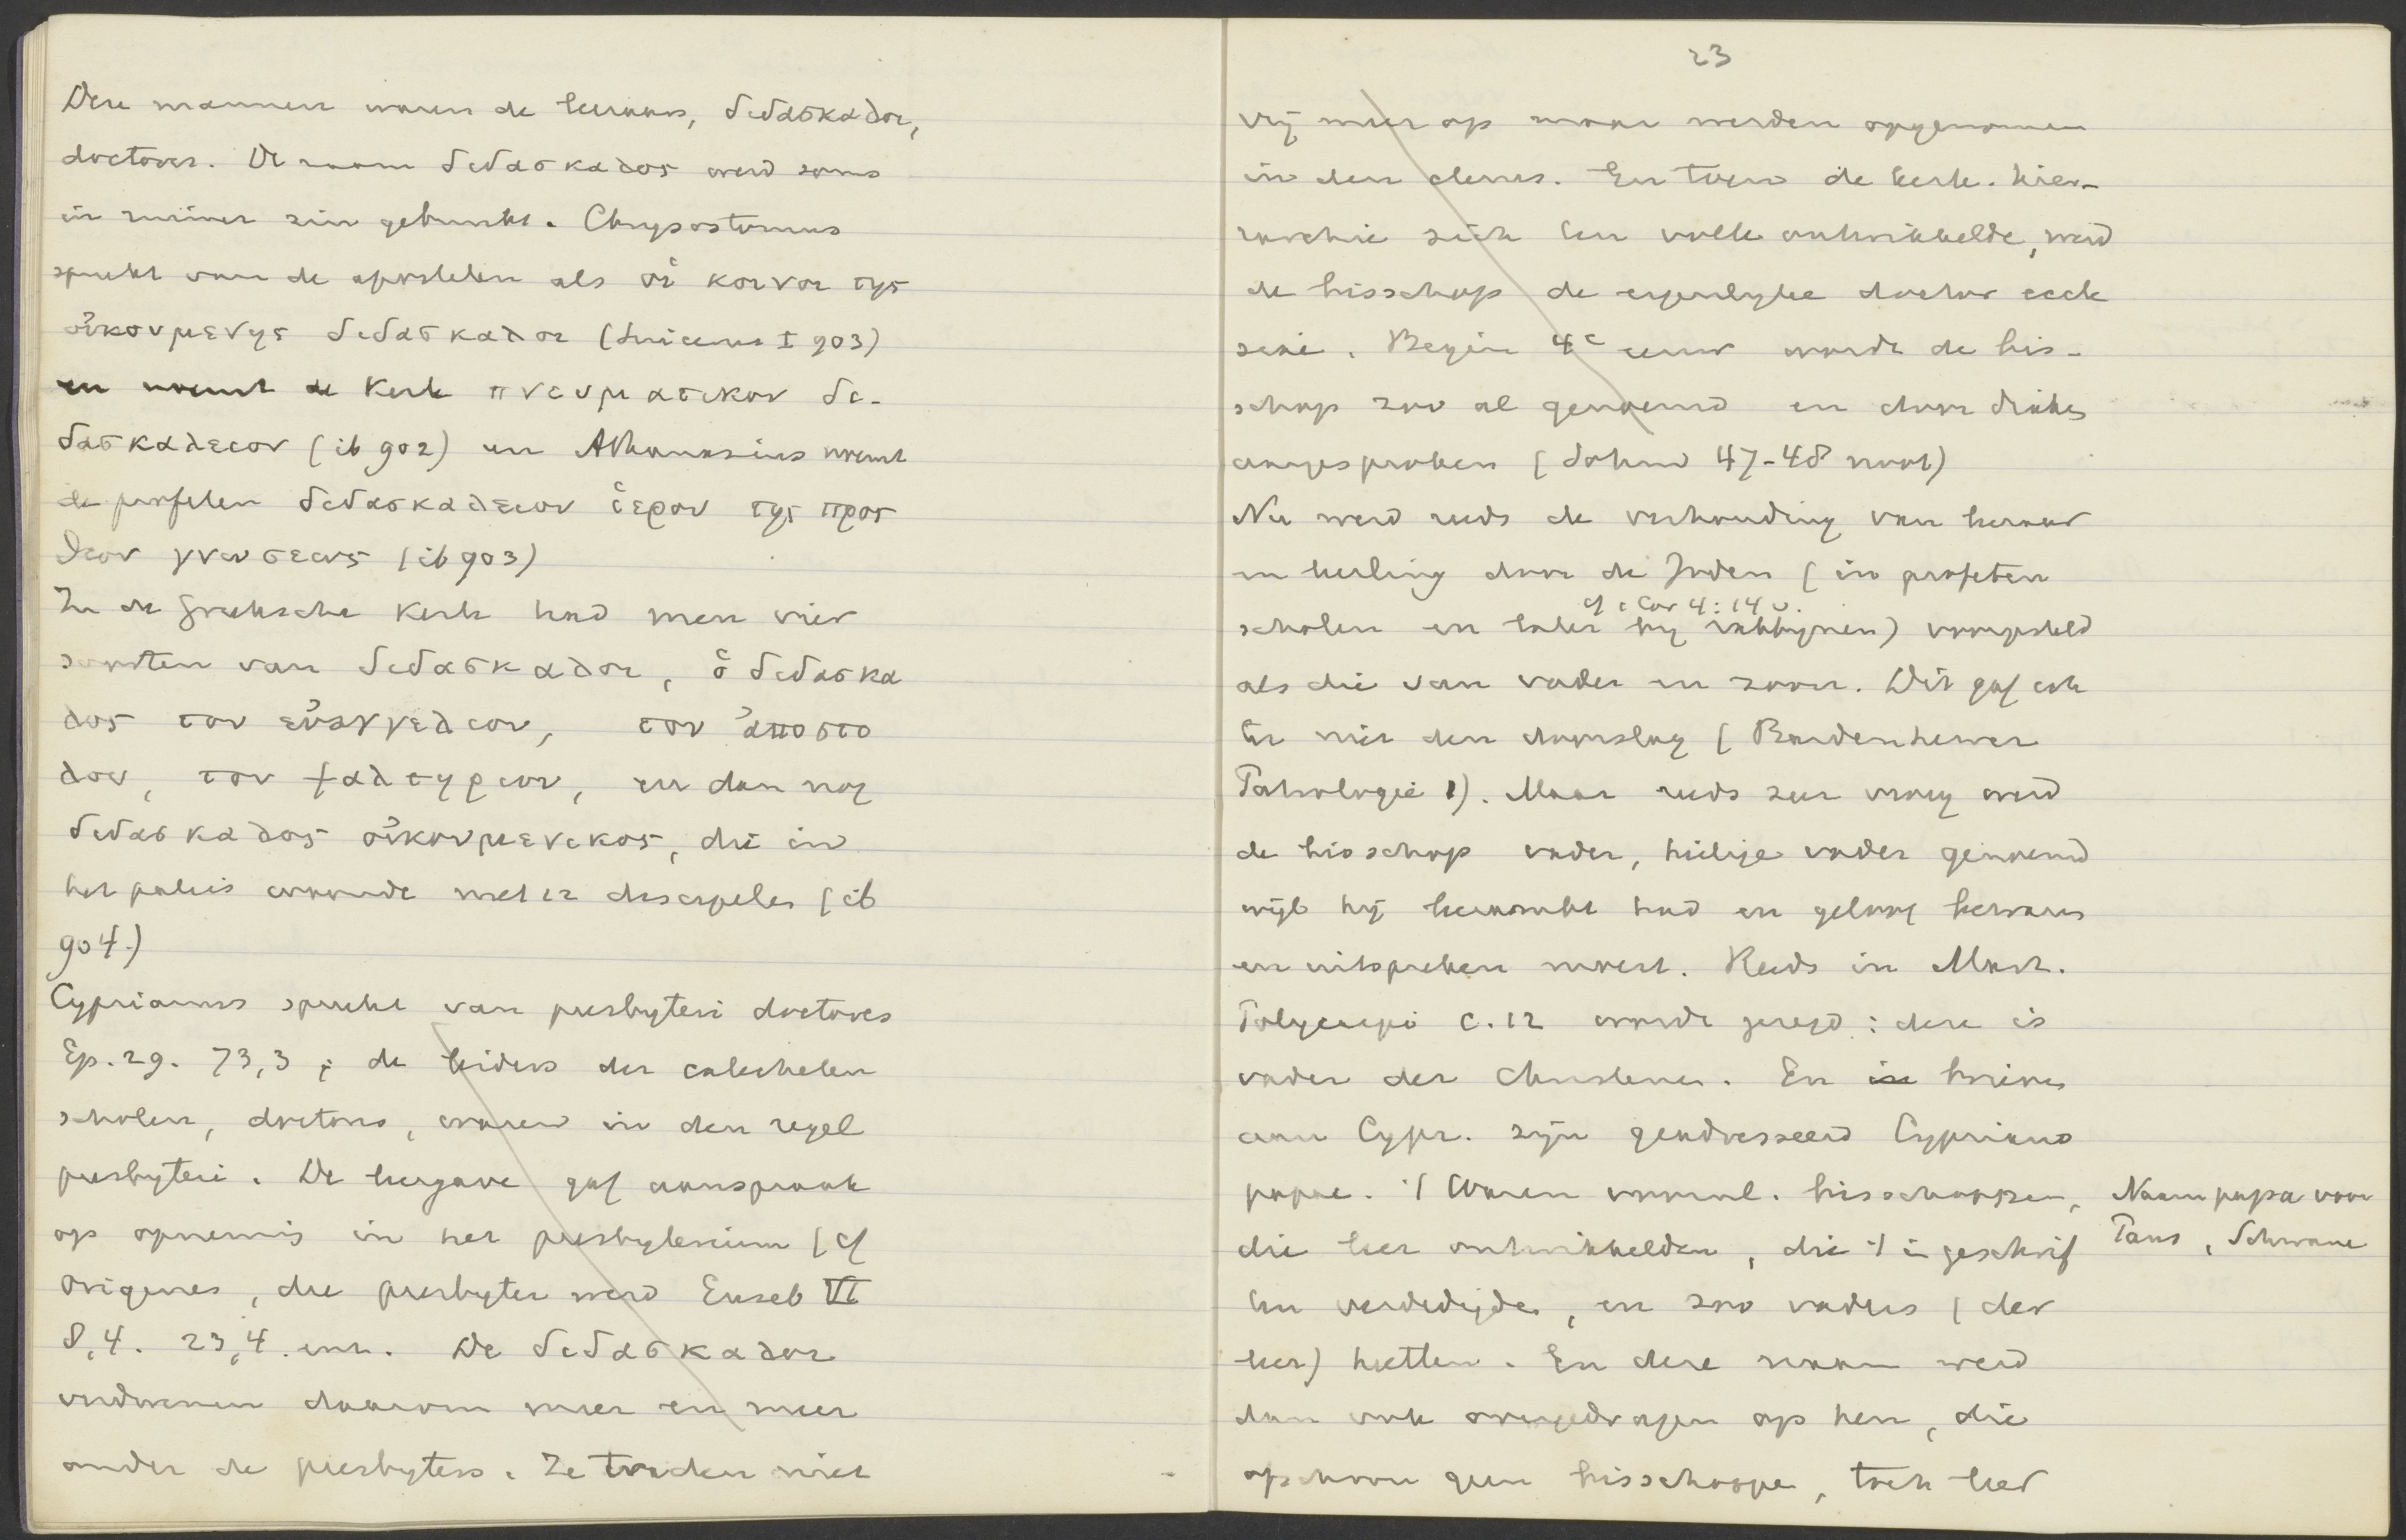 Deze mannen waren de leeraars, διδασκαλοι,
doctores. De naam διδασκαλος werd soms
in ruimer zin gebruikt. Chrysostomus
spreekt van de apostelen als οἱ κοινοι της
οἰκουμενης διδασκαλοι (Suicerus I 903)
en noemt de Kerk πνευματικον δι-
δασκαλειον (ib 902) en Athanasius noemt
de profeten διδασκαλειον ἱερον της προς
θεον γνωσεως (ib 903)
In de Grieksche Kerk had men vier
soorten van διδασκαλοι, ὁ διδασκα
λος του εὐαγγελιου, του ἀποστο
λου, του ψαλτηριου, en dan nog
διδασκαλος οἰκουμενικος, die in
het paleis woonde met 12 discipelen (ib
904.)
Cyprianus spreekt van presbyteri doctores
Ep. 29. 73,3; de leiders der catecheten
scholen, doctores, waren in den regel
presbyteri. De leergave gaf aanspraak
op opneming in het presbyterium (cf
Origenes, die presbyter werd Euseb VI
8,4. 23,4. enz. De διδασκαλοι
verdwenen daarom meer en meer
onder de presbyters. Ze traden niet
23
vrij meer op maar werden opgenomen
in den clerus. En toen de kerk. hier-
archie zich ten volle ontwikkelde, werd
de bisschop de eigenlijke doctor eccle
siae. Begin 4e eeuw wordt de bis-
schop zoo al genoemd en door
aangesproken (Sohm 47-48 noot)
Nu werd reeds de verhouding van leeraar
en leerling door de Joden (in profeten
cf 1 Cor 4:14 v.
scholen en later bij rabbijnen) voorgesteld
als die van vader en zoon. Dit gaf ook
hier den doorslag (Bardenhewer
Patrologie 1). Maar reeds zeer vroeg werd
de bisschop vader, heilige vader genoemd
wijl hij leermacht had en geloof bewaren
en uitspreken moest. Reeds in Mart.
Polycarpi c. 12 wordt gezegd: deze is
vader der Christenen. En brieven
aan Cypr. zijn geadresseerd Cypriano
papae. 't Waren vooral. bisschoppen,
die leer ontwikkelden, die 't in geschrif
ten verdedigden, en zoo vaders (der
leer) heetten. En deze naam werd
dan ook overgedragen op hen, die
ofschoon geen bisschoppen, toch leer
Naam papa voor
Paus, Schwane